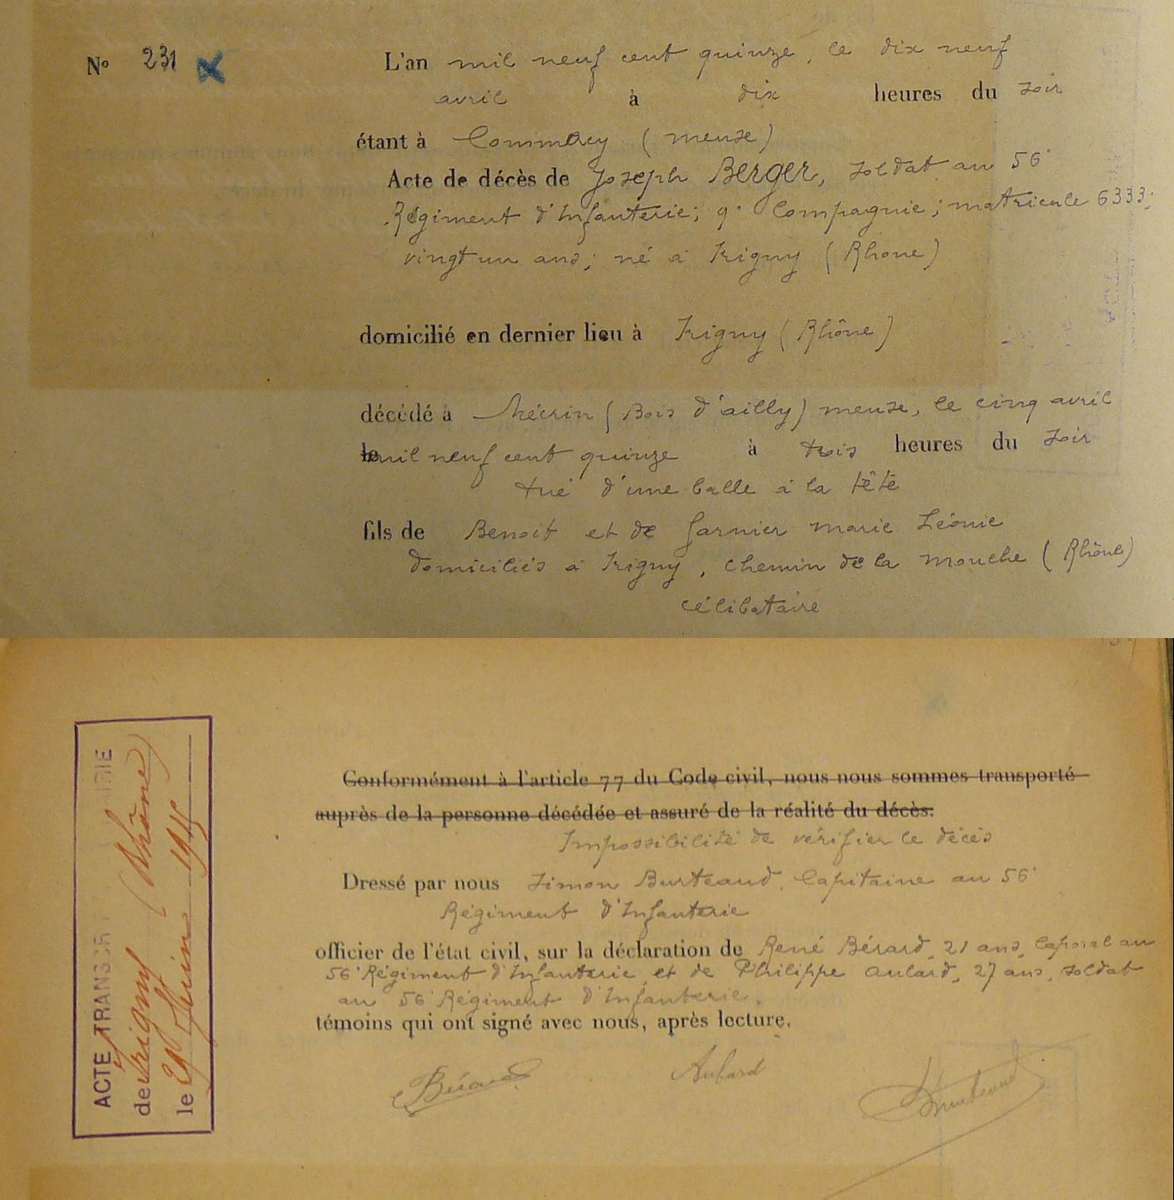 N° 231
L'an mil neuf cent quinze, le dix neuf
avril à dix heures du soir
étant à Commercy (meuse)
Acte de décès de Joseph BERGER, soldat au 56e
Régiment d'Infanterie; 9e Compagnie; matricule 6333;
vingt un ans; né à Irigny (Rhone)
domicilié en dernier lieu à Irigny (Rhône)
décédé à Mécrin (Bois d'ailly) meuse, le cinq avril
le mil neuf cent quinze à trois heures du soir
tué d'une balle à la tête
fils de Benoit et de Garnier marie Léonie
domiciliés à Irigny, chemin de la mouche (Rhône)
célibataire
Conformément à l'article 77 du Code civil, nous nous sommes transporté
auprès de la personne décédée et assuré de la réalité du décès.
Impossibilité de vérifier le décès
Dressé par nous Simon Burteaud, Capitaine au 56e
Régiment d'Infanterie
officier de l'état civil, sur la déclaration de René Bérard, 21 ans, Caporal au
56e Régiment d'Infanterie et de Philippe Aulard, 27 ans, soldat
au 56e Régiment d'Infanterie,
témoins qui ont signé avec nous, après lecture.
Bérard Aulard Burteaud
ACTE TRANSCR MAIRIE
de Irigny (Rhône)
le 29 Juin 1915